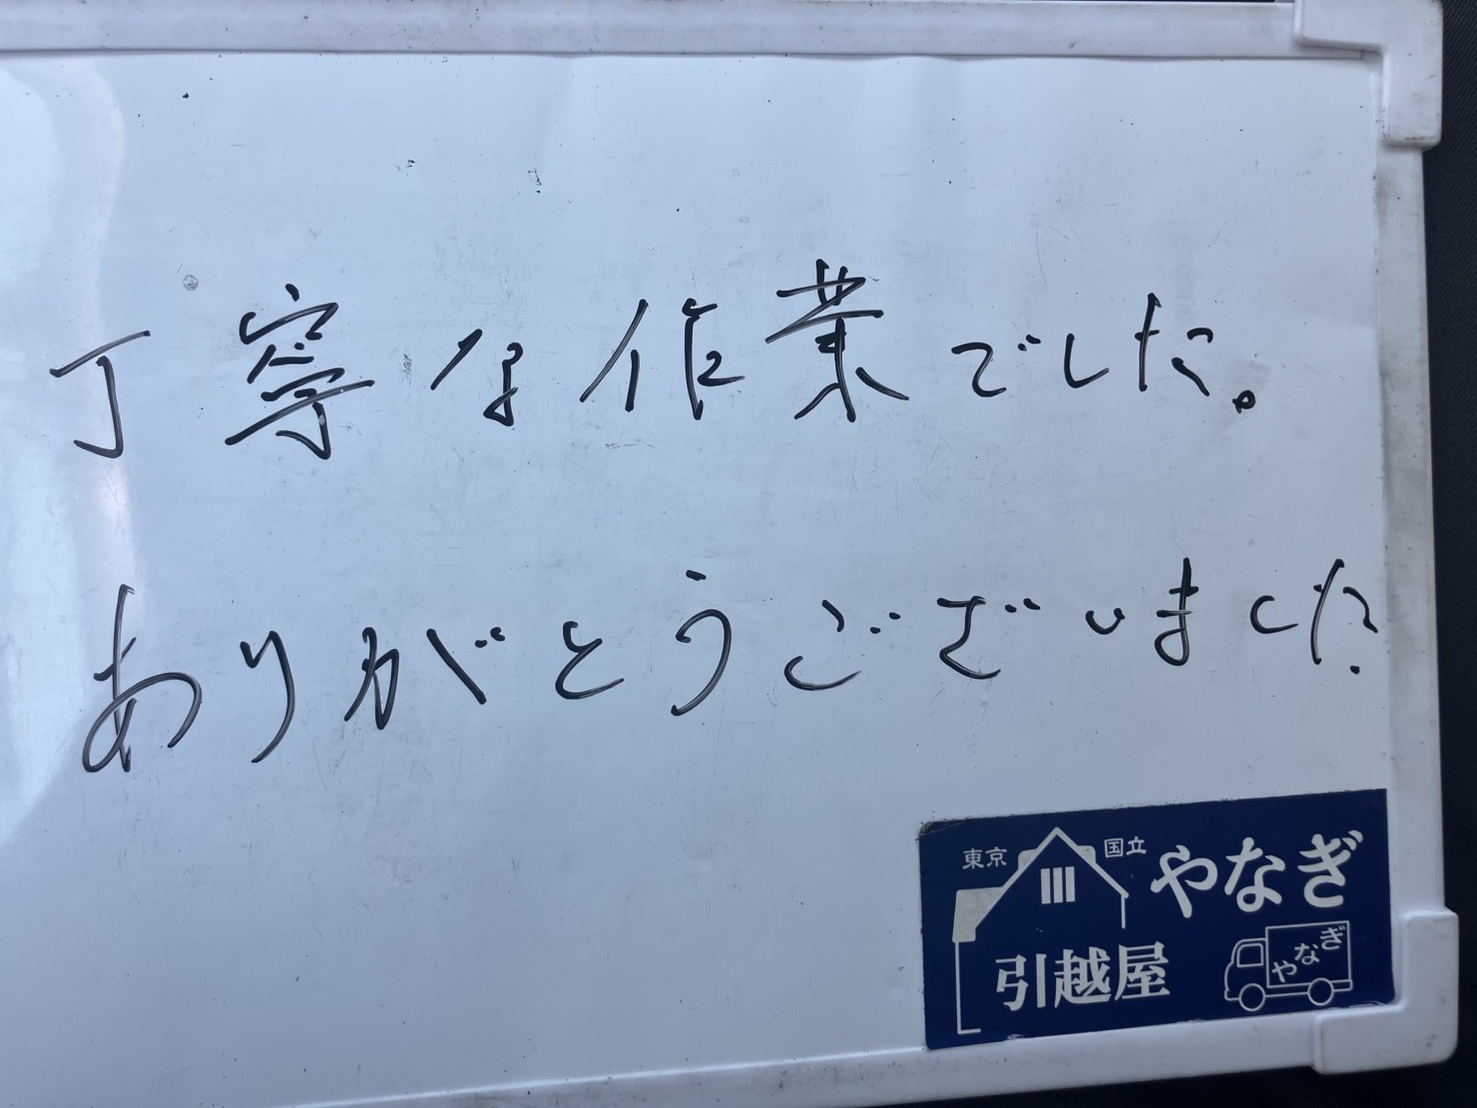 丁寧な作業でした。
ありがとうございました
東京 国立 やなぎ
引越屋 やなぎ